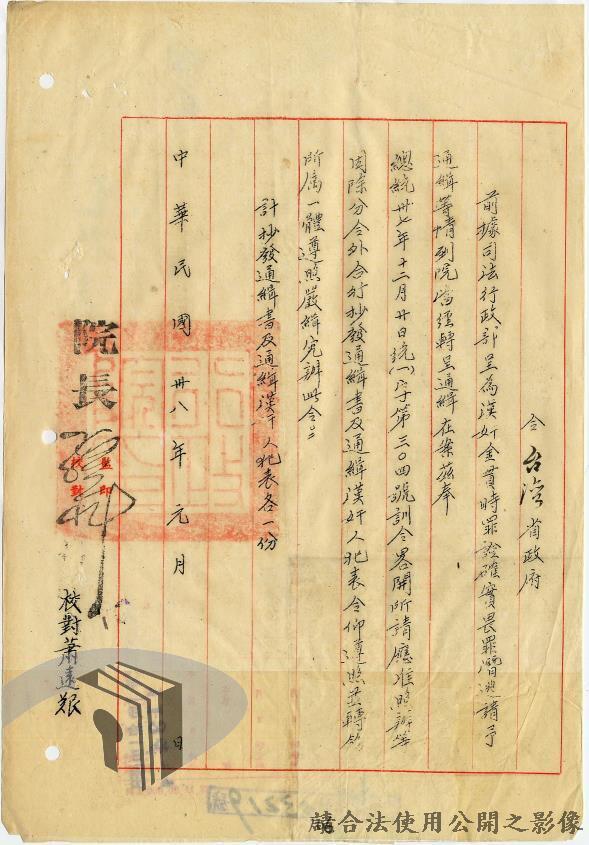 令台灣省政府
前據司法行政部呈為漢奸金貴時罪證確實畏罪潛逃請予
通緝等情到院當經轉呈通緝在案茲奉
總統卅七年十二月廿日統(一)字第三〇四號訓令畧開所請應准照辦等
因除分令外合行抄發通緝書及通緝漢奸人犯表令仰遵照並轉飭
所屬一體遵照嚴緝究辦此令
計抄發通緝書及通緝漢奸人犯表各一份
中華民國卅八年元月 日
院長
監印
校對
校對蕭遠
3219
請合法使用公開之影像